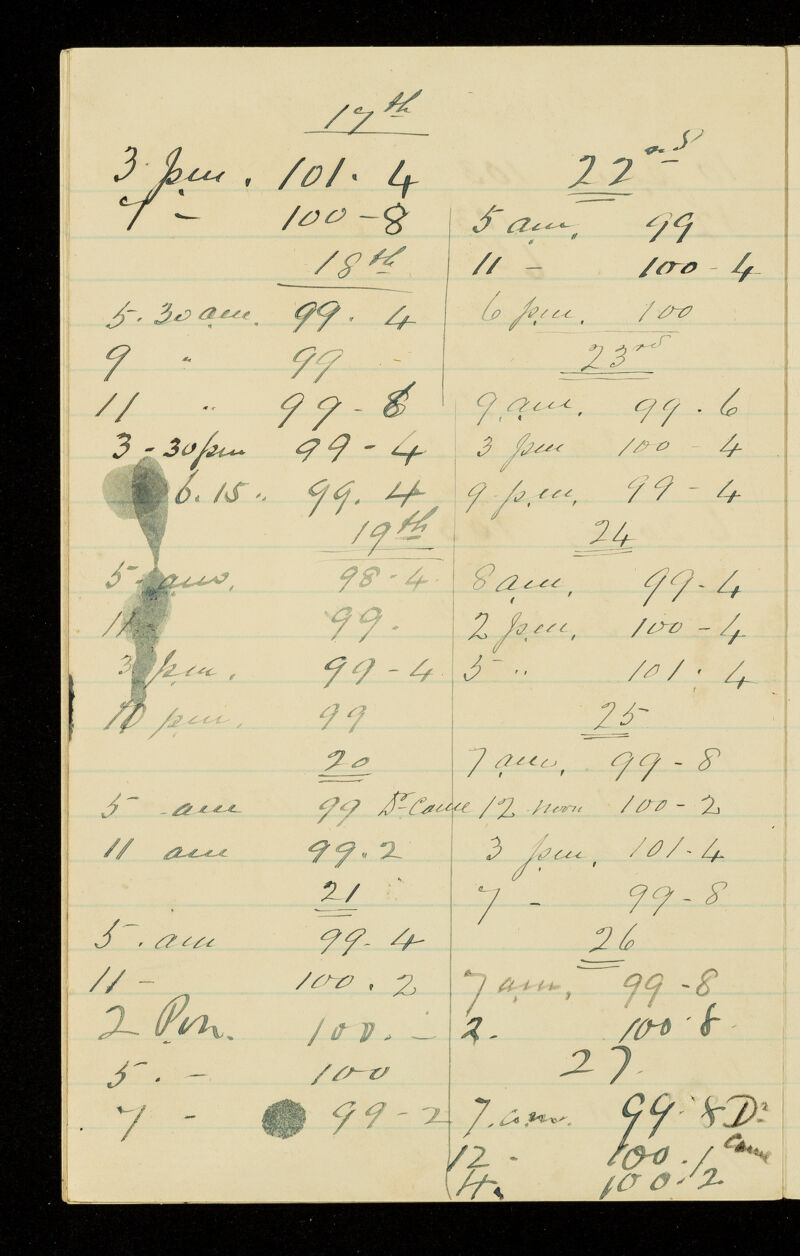 17th
3 pm. 101. 4
7 - 100-8
18th
5.30 am. 99. 4
9 " 99 -
11 " 99-8
3-30 pm 99-4
6.15 " 99. 4
19th
5- am. 98-4
11- 99.
3 pm. 99-4
10 pm. 99
20
5 am 99 Dr came
11 am 99.2
21
5. am 99-4
11- 100.2
2 Pm. 100. -
5. - 100
7 - 99-2
22nd
5 am. 99
11 - 100-4
6 pm. 100
23rd
9 am. 99.6
3 pm 100-4
9 p.m. 99-4
24
8 am. 99-4
2 pm. 100-4
5 " 101.4
25
7 am. 99-8
12 noon 100-2
3 pm. 101-4
7 - 99-8
26
7 am. 99-8
2. 100.8
27.
7. am. 99.8 Dr came
12 - 100.1
4. 100.2